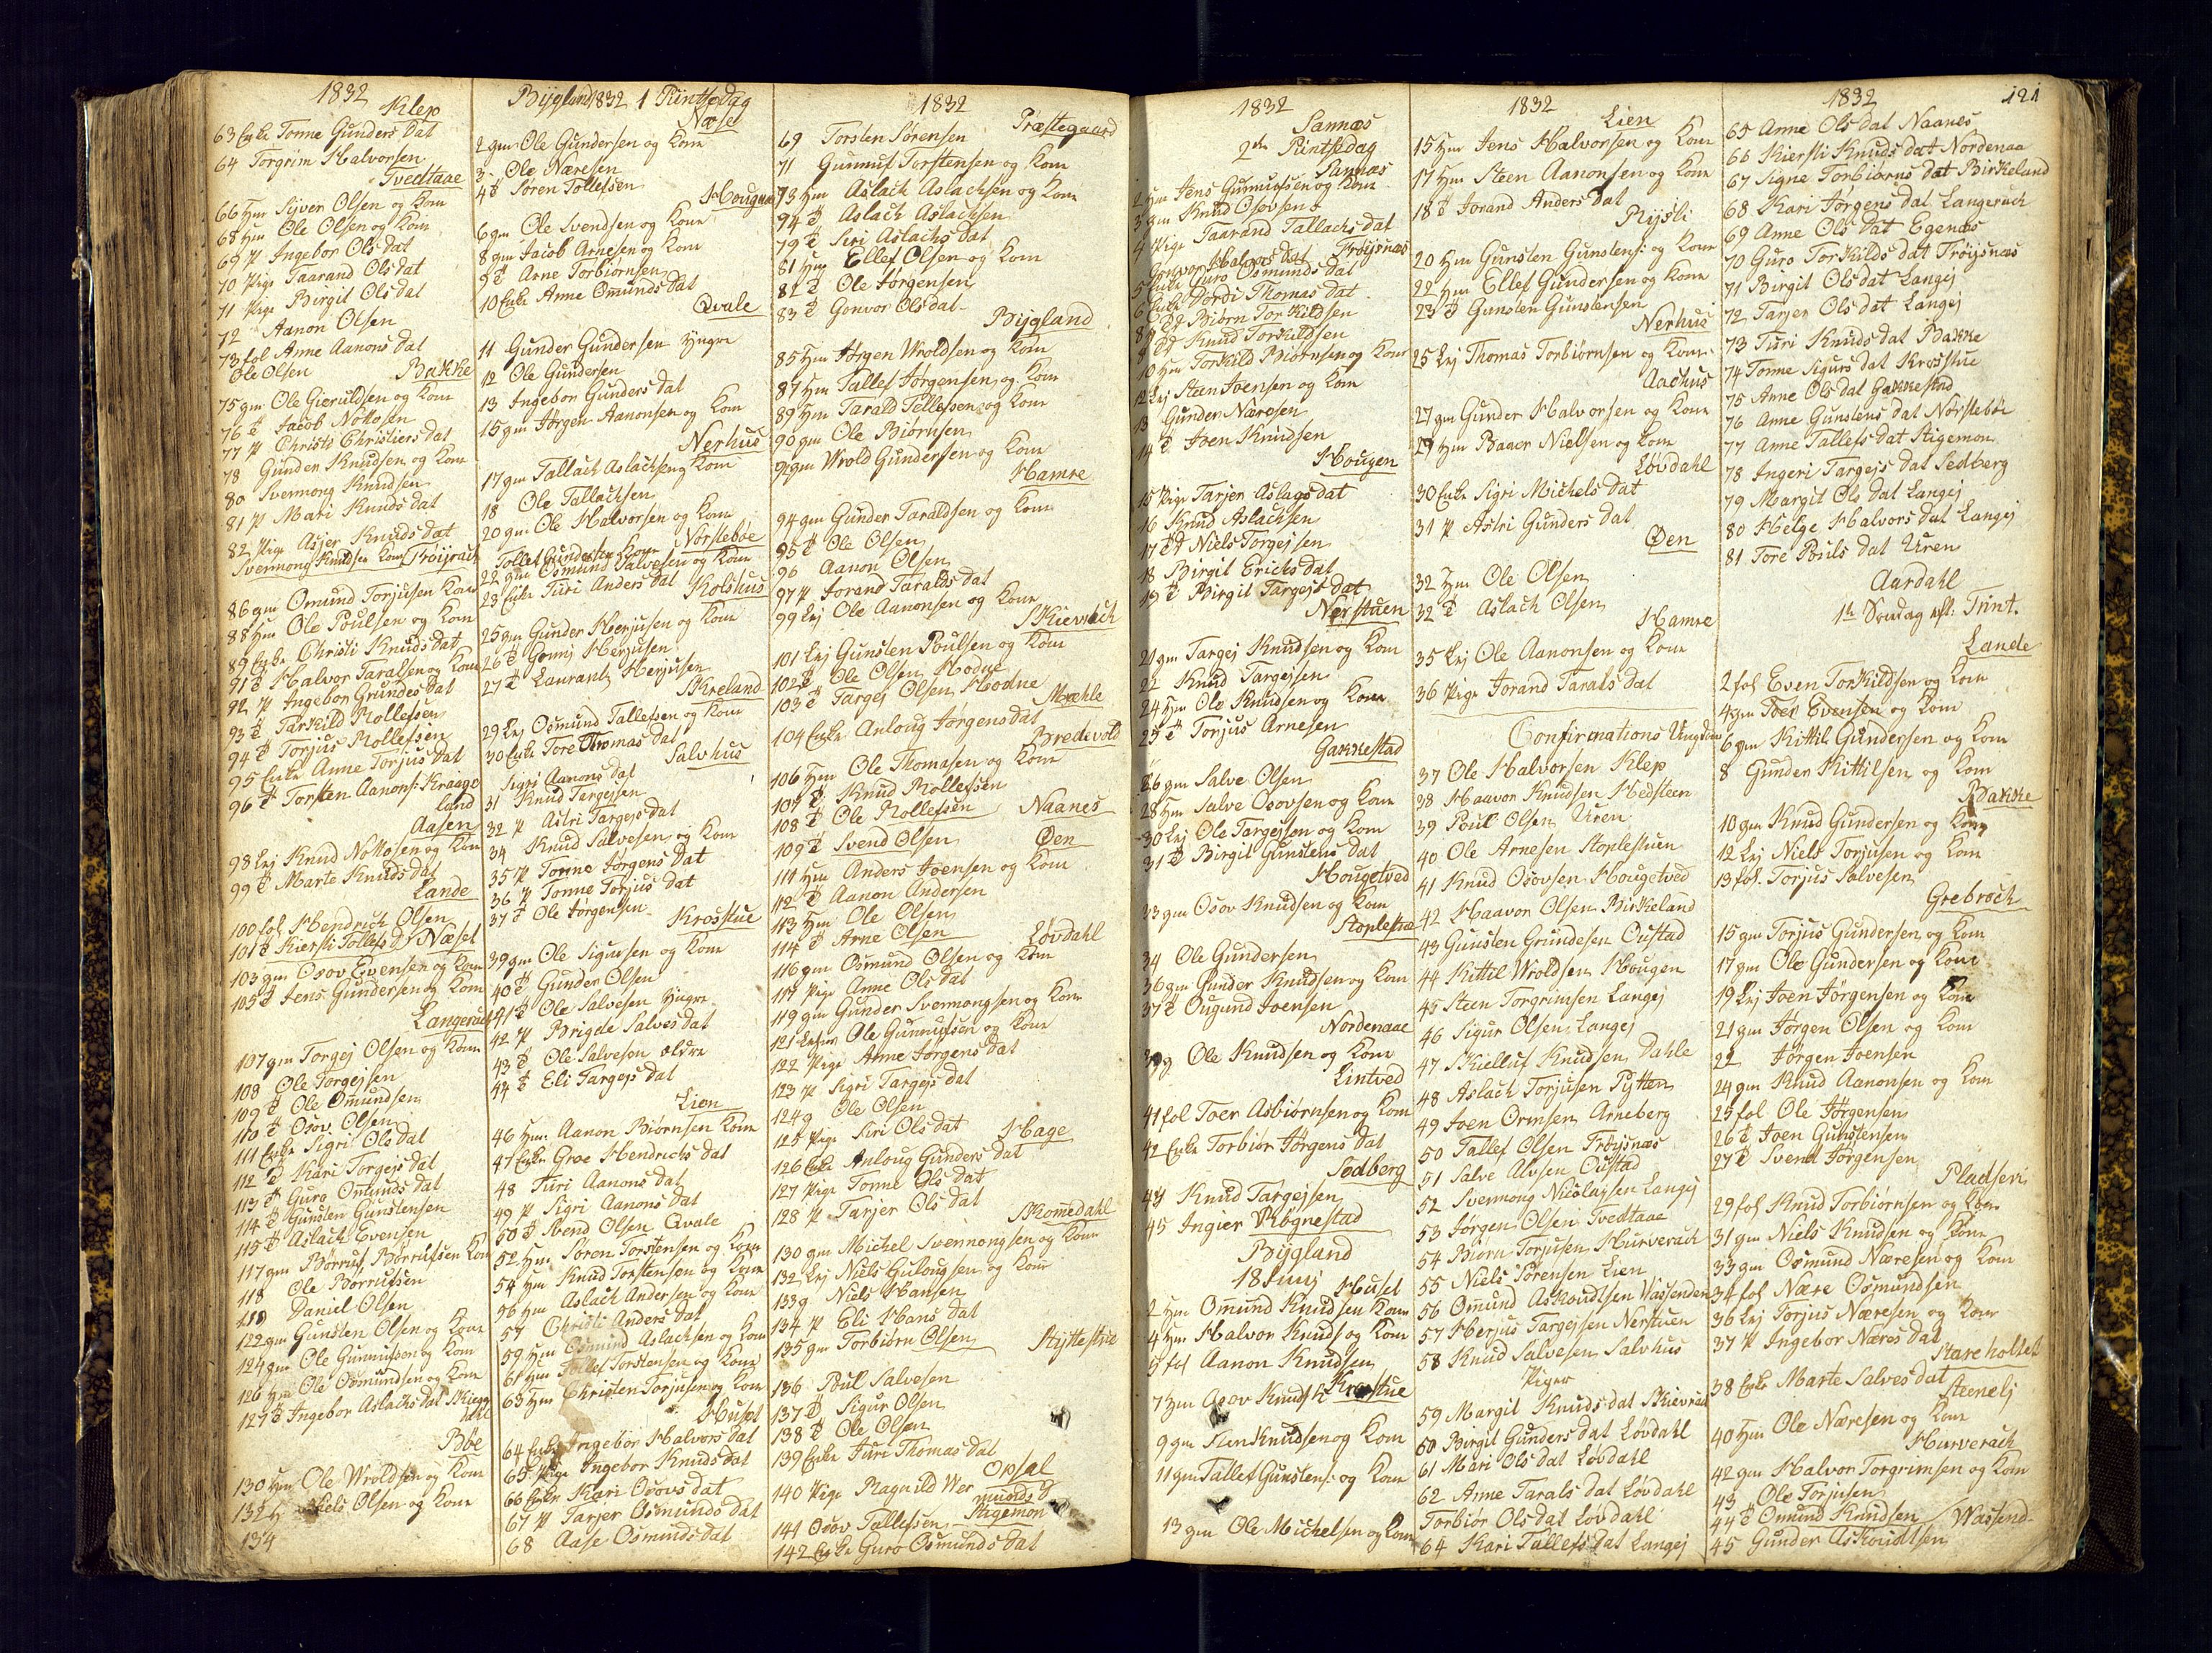 1832
Klep
63 Enke Tonne Gunders dat
64 Torgrim Halvorsen
Tvedtaae
66 Hm Syver Olsen og Kone
68 Hm Ole Olsen og Kone
69 P Ingebor Ols dat
70 Pige Taarand Ols dat
71 Pige Birgit Ols dat
72 Aanon Olsen
73 fol Anne Aanons dat
Ole Olsen
Bakke
75 gm Ole Gieruldsen og Kone
76 d Jacob Nottosen
77 P Christi Christiers dat
78 Gunder Knudsen og Kone
80 Svermong Knudsen
81 P Mari Knuds dat
82 Pige Asjer Knuds dat
Svermong Knudsen Kone Frøirach
86 gm Omund Torjusen Kone
88 Hm Ole Poulsen og Kone
89 Enke Christi Knuds dat
91 d Halvor Taralsen og Kone
92 P Ingebor Grundes dat
93 d Tarkild Rollefsen
94 d Torjus Rollefsen
95 Enke Anne Torjus dat
96 d Torsten Aanons: Kraage
land
Aasen
98 Lej Knud Nottosen og Kone
99 d Marte Knuds dat
Lande
100 fol Hendrich Olsen
101 d Kiersti Tollefs d Næset
103 gm Osov Evensen og Kone
105 d Jens Gundersen og Kone
Langerach
107 gm Torgej Olsen og Kone
108 Ole Torgejsen
109 d Ole Omundsen
110 d Osov Olsen
111 Enke Sigri Ols dat
112 d Kari Torgejs dat
113 d Guro Omunds dat
114 d Gunsten Gunstensen
115 d Aslach Evensen
117 gm Børruf Børrufsen Kone
118 Ole Børrufsen
119 Daniel Olsen
122 gm Gunsten Olsen og Kone
124 gm Ole Gunnufsen og Kone
126 Hm Ole Osmundsen og Kone
127 d Ingebor Aslachs dat
Bøe
130 Hm Ole Wroldsen og Kone
132 H Niels Olsen og Kone
134
Bygland 1832 1 Pintsedag
Næset
2 gm Ole Gundersen og Kone
3 Ole Næresen
4 d Søren Tollefsen
Hougen
6 gm Ole Svendsen og Kone
8 gm Jacob Arnesen og Kone
9 d Arne Torbiørnsen
10 Enke Anne Omunds dat
Qvale
11 Gunder Gundersen Yngre
12 Ole Gundersen
13 Ingebor Gunders dat
15 gm Jørgen Aanonsen og Kone
Nerhus
17 gm Tallach Aslachsen og Kone
18 Ole Tallachsen
20 gm Ole Halvorsen og Kone
Tollef Gundersen Kone Nørstebøe
22 Hm Osmund Salvesen og Kone
23 Enke Turi Anders dat Kolshus
25 gm Gunder Herjusen og Kone
26 d Gonij Herjusen
27 d Laurantz Herjusen
Skreland
29 Lej Osmund Tallefsen og Kone
30 Enke Tore Thomas dat
Salvhus
Sigri Aanons dat
31 Knud Targejsen
32 P Astri Targejs dat
34 Knud Salvesen og Kone
35 P Tonne Jørgens dat
36 P Tonne Torjus dat
37 d Ole Jørgensen Krosstue
39 gm Ole Sigursen og Kone
40 d Gunder Olsen
41 d Ole Salvesen Yngre
42 P Brigde Salves dat
43 d Ole Salvesen ældre
44 d Eli Targejs dat
Lien
46 Hm Aanon Biørnsen Kone
47 Enke Groe Hendrichs dat
48 Turi Aanons dat
49 P Sigri Aanons dat
50 d Svend Olsen Qvale
52 Hm Søren Torstensen og Kone
54 Hm Knud Torstensen og Kone
56 Hm Aslach Andersen og Kone
57 Christi Anders dat
59 Hm Osmund Aslachsen og Kone
61 Hm Tollef Torstensen og Kone
63 Hm Christen Torjusen og Kone
Huset
64 Enke Ingebor Halvors dat
65 Pige Ingebor Knuds dat
66 Enke Kari Osovs dat
67 P Tarjer Osmunds dat
68 Aase Osmunds dat
1832
Præstegaard
69 Torsten Sørensen
71 Gunnuf Torstensen og Kone
73 Hm Aslach Aslachsen og Kone
74 d Aslach Aslachsen
79 d Siri Aslachs dat
81 Hm Ellef Olsen og Kone
82 d Ole Jørgensen
83 d Gonvor Ols dat
Bygland
85 Hm Jørgen Wroldsen og Kone
87 Hm Tallef Jørgensen og Kone
89 Hm Tarald Tellefsen og Kone
90 gm Ole Biørnsen
92 gm Wrold Gundersen og Kone
Hamre
94 gm Gunder Taraldsen og Kone
95 d Ole Olsen
96 Aanon Olsen
97 P Jorand Taralds dat
99 Lej Ole Aanonsen og Kone
Skievrach
101 Lej Gunsten Poulsen og Kone
102 d Ole Olsen Hodne
103 d Targej Olsen Hodne
Mæhle
104 Enke Anloug Jørgens dat
Bredevold
106 Hm Ole Thomasen og Kone
107 d Knud Rollefsen
108 d Ole Rollefsen Naanes
109 d Svend Olsen Øen
111 Hm Anders Joensen og Kone
112 d Aanon Andersen
113 Hm Ole Olsen
114 d Arne Olsen Løvdahl
116 gm Osmund Olsen og Kone
117 Pige Anne Ols dat
119 gm Gunder Svermongsen og Kone
121 Ole Gunnufsen og Kone
122 Pige Anne Jørgens dat
123 P Sigri Targejs dat
124 g Ole Olsen
125 Pige Siri Ols dat Hage
126 Enke Anloug Gunders dat
127 Pige Tonne Ols dat
128 P Tarjer Ols dat
Skomedahl
130 gm Michel Svermongsen og Kone
132 Lej Niels Gulougsen og Kone
133 g Niels Hansen
134 P Eli Hans dat
135 gm Torbiørn Olsen
136 Poul Salvesen
137 d Sigur Olsen
138 d Ole Olsen
139 Enke Turi Thomas dat
Opsal
140 Pige Ragnild Wer
munds d
Stigemon
141 Osov Tallefsen
142 Enke Guro Osmunds dat
1832
Sannæs
2den Pintsedag
Sannæs
2 Hm Jens Gunnufsen og Kone
3 gm Knud Osovsen
4 Pige Taarand Tallachs dat
Gonvor Halvors dat Frøysnæs
5 Enke Guro Osmunds dat
6 Enke Jordi Thomas dat
Biørn Torkildsen
8 Knud Torkildsen
10 Hm Torkild Biørnsen og Kone
12 Lej Steen Svensen og Kone
13 Gunder Næresen
14 d Joen Knudsen
Hougen
15 Pige Tarjer Aslags dat
16 Knud Aslachsen
17 Niels Torgejsen
18 Birgit Erichs dat
19 d Birgit Targejs dat
Nerstuen
21 gm Targej Knudsen og Kone
22 Knud Targejsen
24 Hm Ole Knudsen og Kone
25 d Torjus Arnesen
Gakkestad
26 gm Salve Olsen
28 Hm Salve Osovsen og Kone
30 Lej Ole Targejsen og Kone
31 d Birgit Gunstens dat
Hougetved
33 gm Osov Knudsen og Kone
34 Ole Gundersen
36 gm Gunder Knudsen og Kone
37 d Ougund Joensen
Nordenaae
39 g Ole Knudsen og Kone
Lintved
41 fol Toer Asbiørnsen og Kone
42 Enke Torbiør Jørgens dat
Sedberg
44 Knud Targejsen
45 Ingier Røgnestad
Bygland
18 Junij
Huset
2 Hm Omund Knudsen Kone
4 Hm Halvor Knuds og Kone
5 fol Aanon Knudsen
7 Hm Osov Knuds K Krostue
9 gm Knudsen og Kone
11 gm Tallef Gunstens: og Kone
13 gm Ole Michelsen og Kone
1832
Lien
15 Hm Jens Halvorsen og Kone
17 Hm Steen Aanonsen og Kone
18 d Jorand Anders dat
Rysli
20 Hm Gunsten Gunstens: og Kone
22 Hm Ellef Gundersen og Kone
23 d Gunsten Gunstensen
Nerhus
25 Lej Thomas Torbiørnsen og Kone
Aachus
27 gm Gunder Halvorsen og Kone
29 Hm Baaer Nielsen og Kone
Løvdahl
30 Enke Sigri Michels dat
31 P Astri Gunders dat
Øen
32 Hm Ole Olsen
32 d Aslach Olsen
Hamre
35 Lej Ole Aanonsen og Kone
36 Pige Jorand Tarals dat
Confirmations Ungdom
37 Ole Halvorsen Klep
38 Haavor Knudsen Hedsteen
39 Poul Olsen Uren
40 Ole Arnesen Stoplestuen
41 Knud Osovsen Hougetved
42 Haavor Olsen Birkeland
43 Gunsten Grundesen Oustad
44 Kittil Wroldsen Hougen
45 Steen Torgrimsen Langej
46 Sigur Olsen Langej
47 Skielluf Knudsen Dahle
48 Aslach Torjusen Pytten
49 Joen Ormsen Arneberg
50 Tallef Olsen Frøysnæs
51 Salve Alvsen Oustad
52 Svermong Nicolaysen Langej
53 Jørgen Olsen Tvedtaae
54 Biørn Torjusen Hurverach
55 Niels Sørensen Lien
56 Omund Askoudtsen Vassenden
57 Herjus Targejsen Nerstuen
58 Knud Salvesen Salvhus
Piger
59 Margit Knuds dat Skievrach
60 Birgit Gunders dat Løvdahl
61 Mari Ols dat Løvdahl
62 Anne Tarals dat Løvdahl
Torbiør Ols dat Løvdahl
64 Kari Tallefs dat Langej
1832
121
65 Anne Ols dat Naanes
66 Kiersti Knuds dat Nordenaa
67 Signe Torbiørns dat Birkeland
68 Kari Jørgens dat Langerach
69 Anne Ols dat Egenæs
70 Guro Torkilds dat Frøysnæs
71 Birgit Ols dat Langej
72 Tarjer Ols dat Langej
73 Turi Knuds dat Bakke
74 Tonne Sigurs dat Krosstue
75 Anne Ols dat Gakkestad
76 Anne Gunstens dat Nørstebøe
77 Anne Tallefs dat Stigemon
78 Ingeri Targejs dat Sedberg
79 Margit Ols dat Langej
80 Helge Halvors dat Langej
81 Tore Pouls dat Uren
Aardahl
1te Søndag eft: Trint.
Lande
2 fol Even Torkildsen og Kone
4 gm Toer Evensen og Kone
6 gm Kittil Gundersen og Kone
8 Gunder Kittilsen og Kone
Bakke
10 gm Knud Gundersen og Kone
12 Lej Niels Torjusen og Kone
13 fol. Torjus Salvesen
Grebroch
15 gm Torjus Gundersen og Kone
17 gm Ole Gundersen og Kone
19 Lej Joen Jørgensen og Kone
21 gm Jørgen Olsen og Kone
22 Jørgen Joensen
24 gm Knud Aanonsen og Kone
25 fol Ole Jørgensen
26 d Joen Gunstensen
27 d Svend Jørgensen
Pladsen
29 fol Knud Torbiørnsen og Kone
31 gm Niels Knudsen og Kone
33 gm Osmund Næresen og Kone
34 fol Nære Osmundsen
36 Lej Torjus Næresen og Kone
37 P Ingebor Næres dat
Stareholtet
38 Enke Marte Salves dat
Steenelj
40 Hm Ole Næresen og Kone
Hurverach
42 gm Halvor Torgrimsen og Kone
43 Ole Torjusen
44 d Omund Knudsen Wassend
45 Gunder Askoudtsen